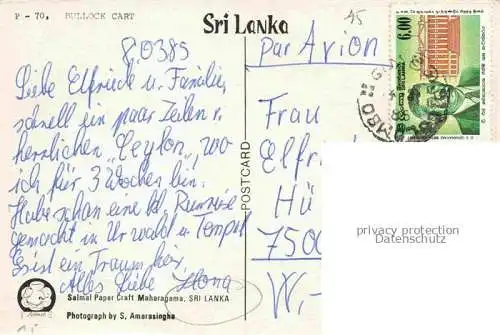 P - 70. BULLOCK CART
Sri Lanka
8.0385
Par Avion
Liebe Elfriede u. Familie,
schnell ein paar Zeilen v.
herrlichen "Ceylon", wo
ich für 3 Wochen bin.
Habe schon eine kl. Rundreise
gemacht in Urwald u. Tempel
Es ist ein Traum hier,
Alles Liebe Ilona
Frau
Elfr
Hü
7500
W,-
POSTCARD
6.00
privacy protection
Datenschutz
Salmal Paper Craft Maharagama, SRI LANKA
Photograph by S. Amarasingha